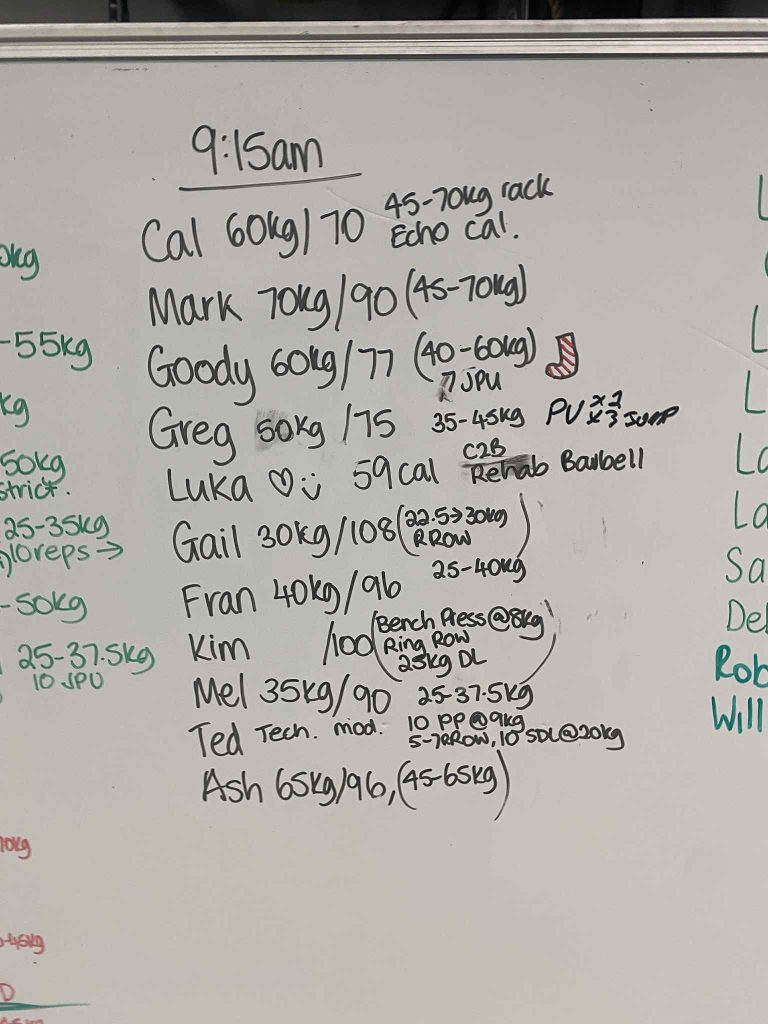 9:15am
Cal 60kg/70 45-70kg rack
Echo cal.
Mark 70kg/90 (45-70kg)
Goody 60kg/77 (40-60kg)
7 JPU
Greg 50kg /75 35-45kg PU x2
x3 JUMP
Luka ♡ü 59cal C2B
Rehab Barbell
Gail 30kg/108 (22.5→30kg
RROW)
Fran 40kg/96 25-40kg
Kim /100 (Bench Press@8kg
Ring Row
25kg DL)
Mel 35kg/90 25-37.5kg
Ted Tech. mod. 10 PP@9kg
5-7RROW, 10 SDL@20kg
Ash 65kg/96, (45-65kg)
0kg
-55kg
kg
50kg
strict.
25-35kg
10reps →
-50kg
25-37.5kg
10 JPU
70kg
-45kg
D
L
L
L
La
La
Sa
Del
Rob
Will